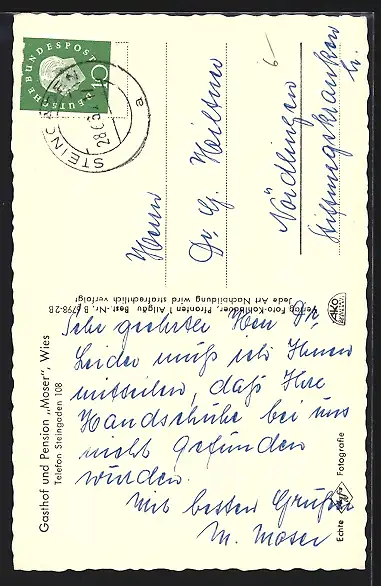 DEUTSCHE BUNDESPOST
10
STEINGADEN
28.6.5
a
Herrn
Dr. G.
Nördlingen
Stiftungskrankenh.
Verlag Foto-Kohlbauer, Pfronten 1 Allgäu Best.-Nr. B 6798-2B
Jede Art Nachbildung wird strafrechtlich verfolgt
AKO
Gasthof und Pension „Moser", Wies
Telefon Steingaden 108
Sehr geehrter Herr Dr,
Leider muß ich Ihnen
mitteilen, daß Ihre
Handschuhe bei uns
nicht gefunden
wurden.
Mit besten Grüßen
M. Moser
Echte Agfa Fotografie